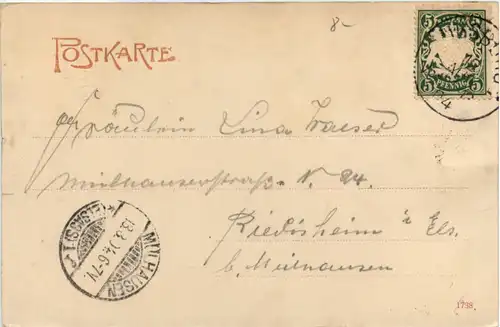 8-
POSTKARTE
5 5
PFENNIG
Fräulein Lina
Mülhauserstraße N. 24.
Riedisheim i/ Els.
b. Mülhausen
MÜLHAUSEN
13.8.04. 6-7V.
1738